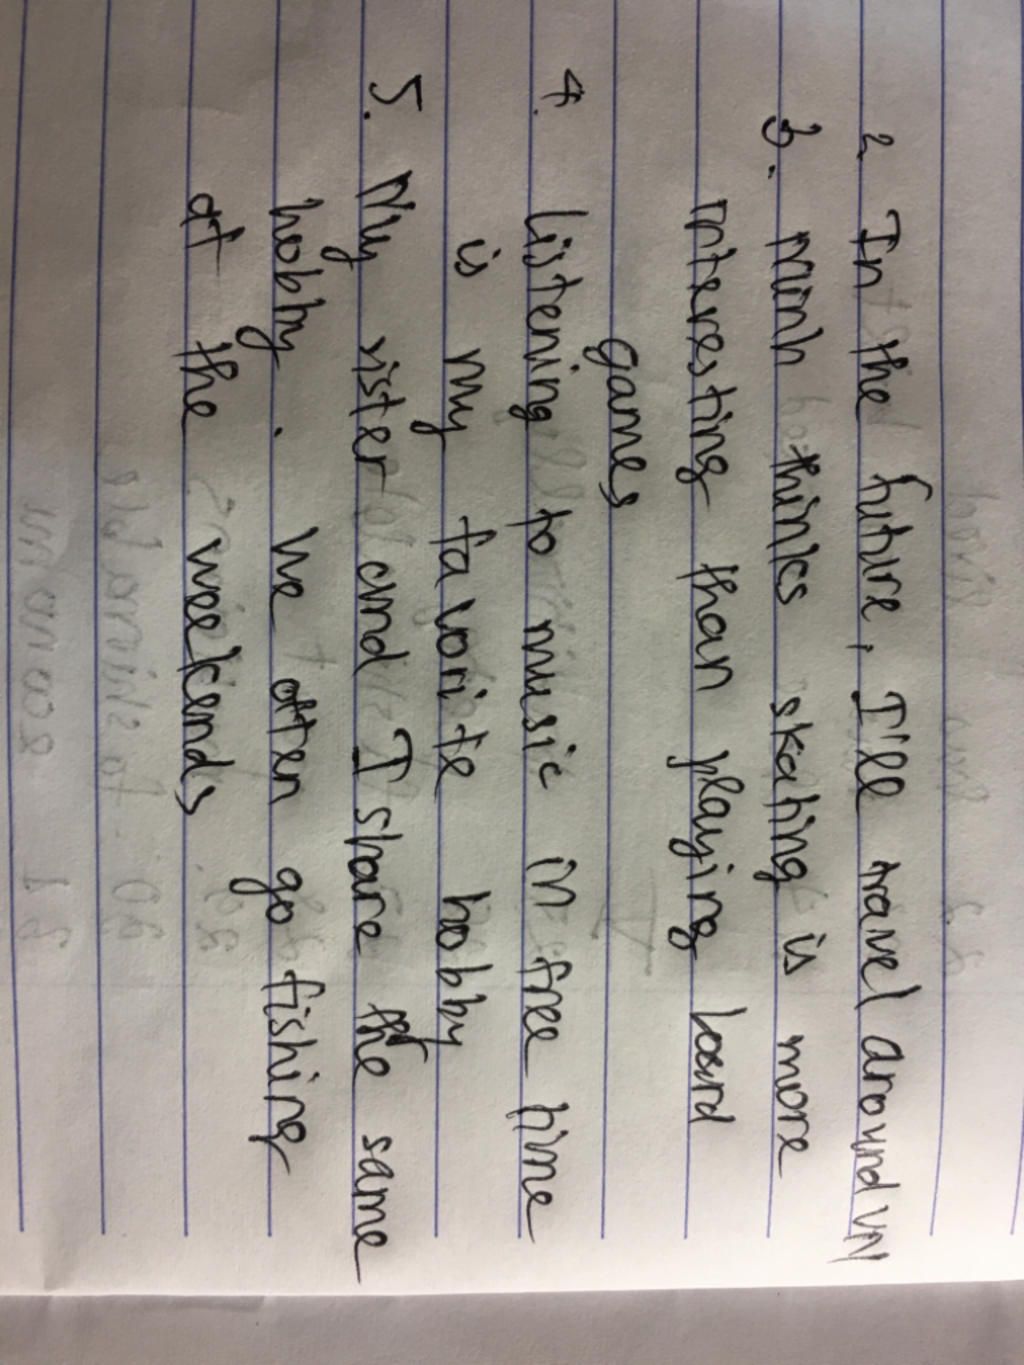 2. In the future, I'll travel around VN
3. minh thinks skating is more
interesting than playing board
games
4. listening to music in free time
is my favorite hobby
5. My sister and I share the same
hobby. We often go fishing
at the weekends